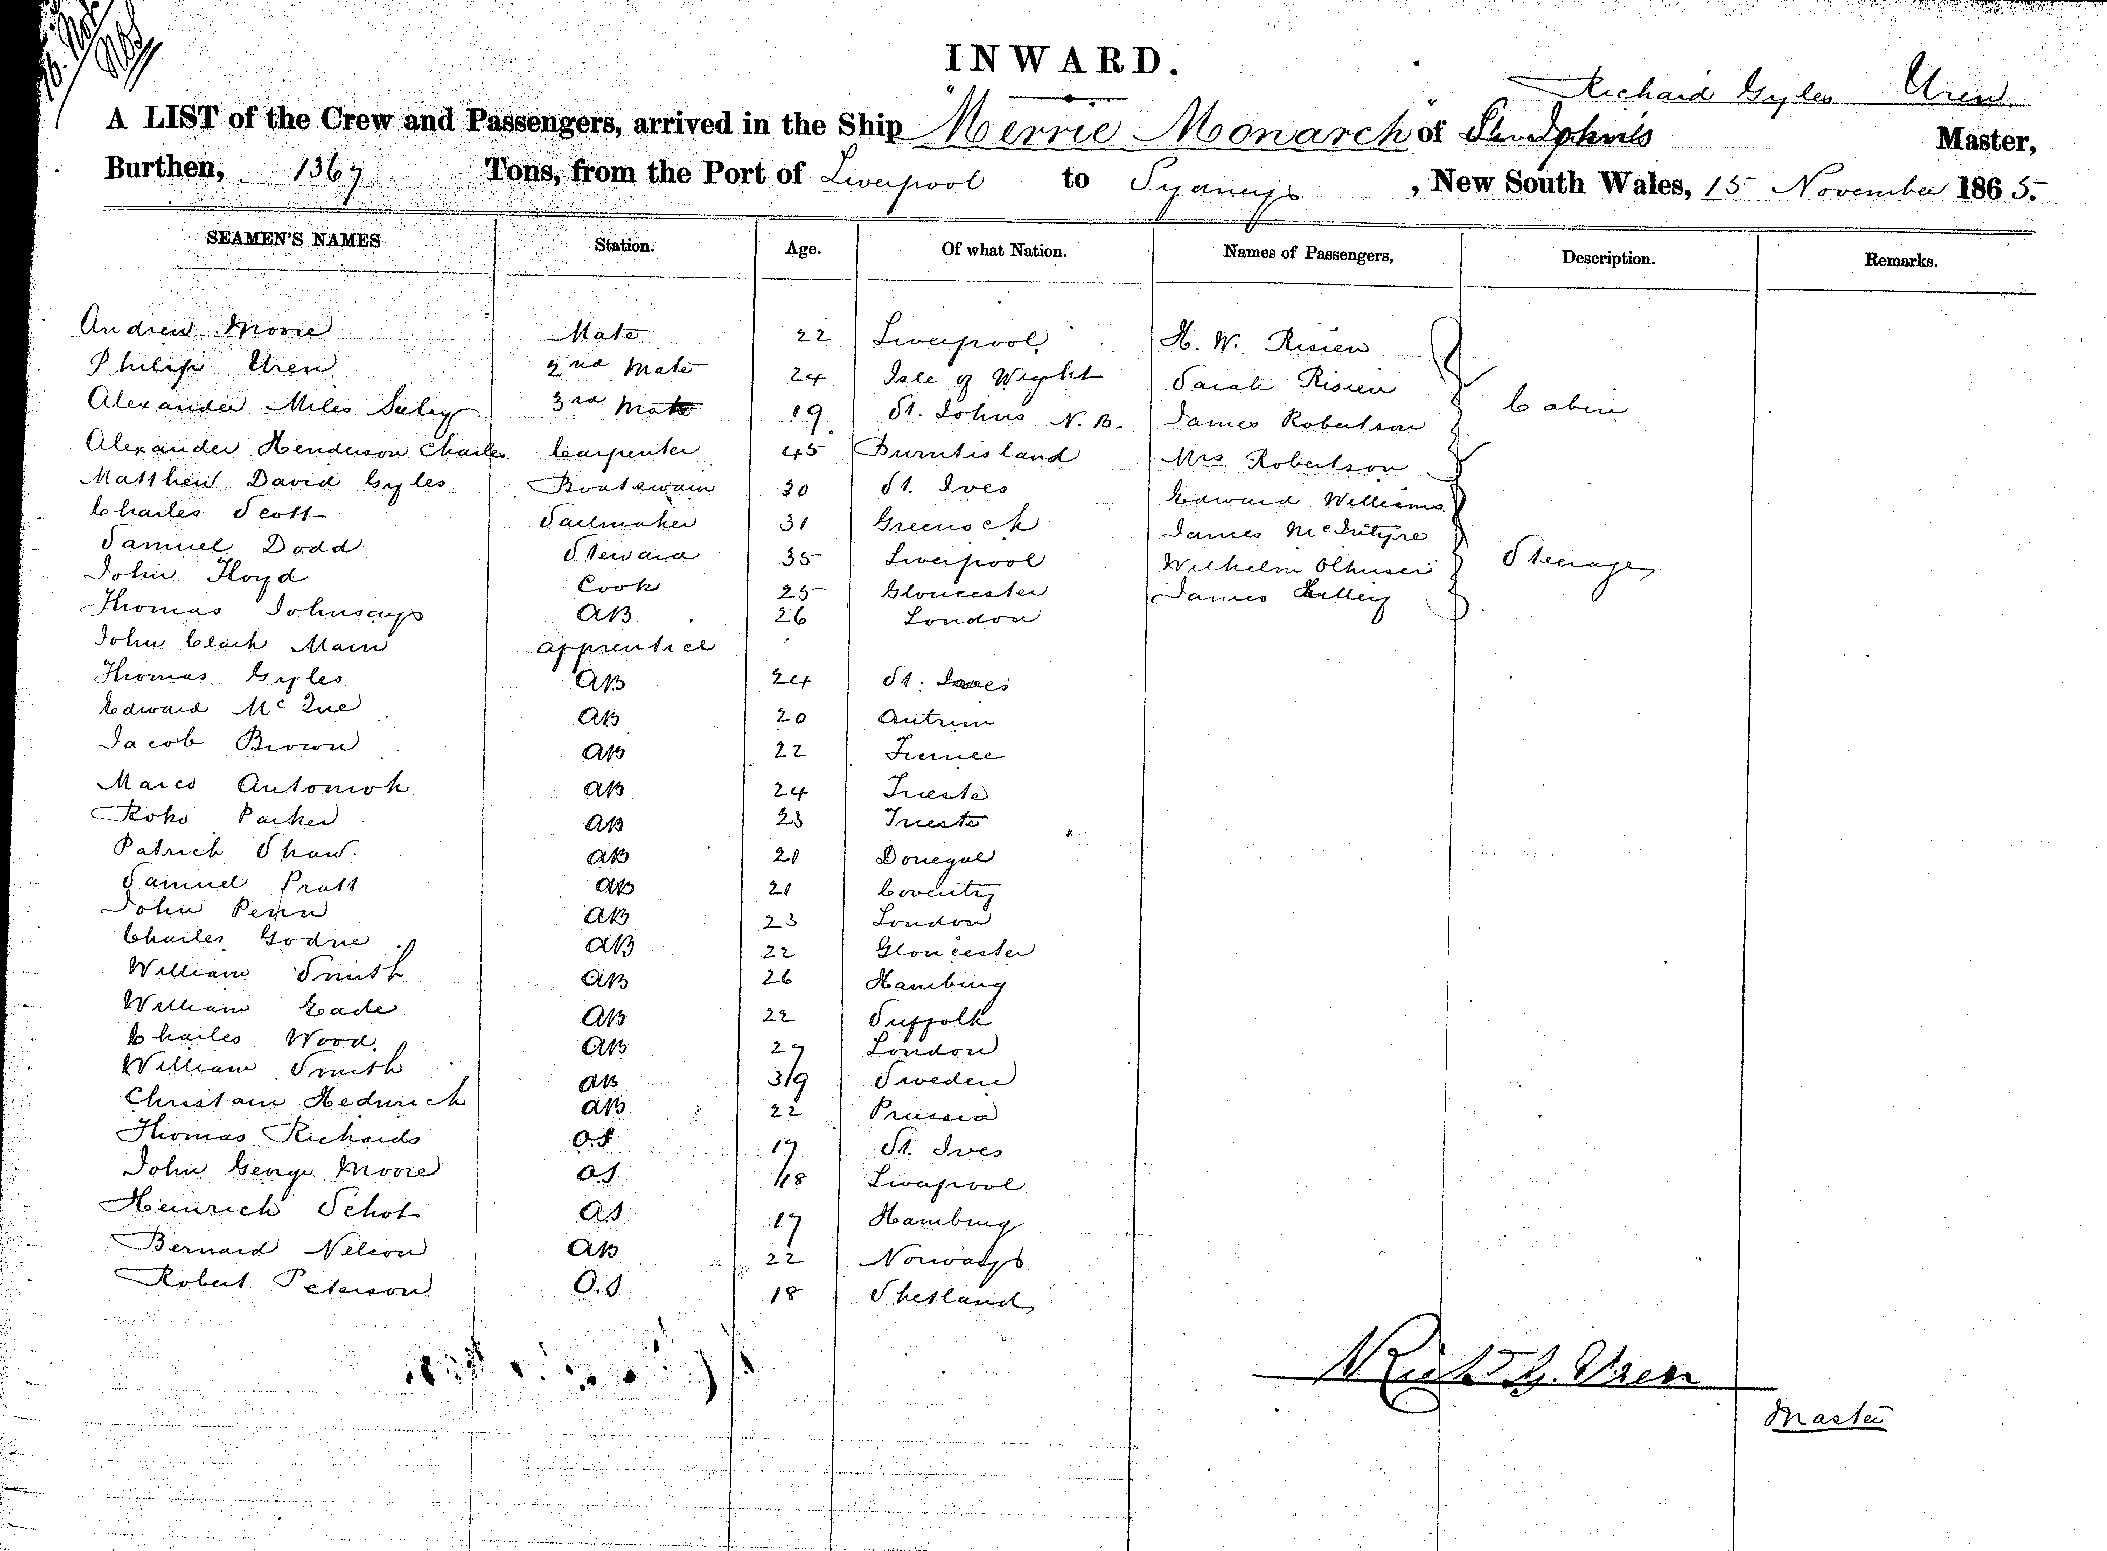 INWARD.
Richard Gyles Uren
A LIST of the Crew and Passengers, arrived in the Ship "Merrie Monarch" of St. Johns Master,
Burthen, 1367 Tons, from the Port of Liverpool to Sydney, New South Wales, 15 November 1865.
SEAMEN'S NAMES Station. Age. Of what Nation. Names of Passengers, Description. Remarks.
Andrew Moore Mate 22 Liverpool H. W. Risien
Philip Uren 2nd Mate 24 Isle of Wight Sarah Risien
Alexander Miles 3rd Mate 19 St. Johns N.B. James Robertson Cabin
Alexander Henderson Charles Carpenter 45 Burntisland Mrs Robertson
Matthew David Gyles Boatswain 30 St. Ives Edward Williams
Charles Scott Sailmaker 31 Greenock James McIntyre
Samuel Dodd Steward 35 Liverpool Wilhelm Steerage
John Floyd Cook 25 Gloucester James
Thomas AB 26 London
John Clark Mann apprentice
Thomas Gyles AB 24 St. Ives
Edward McQue AB 20 Antrim
Jacob Brown AB 22
Marco AB 24 Trieste
Roko Parker AB 23 Trieste
Patrick Shaw AB 21 Donegal
Samuel Pratt AB 21 Coventry
John Penn AB 23 London
Charles AB 22 Gloucester
William Smith AB 26 Hamburg
William Eade AB 22 Suffolk
Charles Wood AB 27 London
William Smith AB 39 Sweden
Christain AB 22 Prussia
Thomas Richards O.S 17 St. Ives
John George Moore OS 18 Liverpool
Heinrich Schot OS 17 Hamburg
Bernard Nelson AB 22 Norway
Robert Peterson O.S 18 Shetland
Richd G. Uren
Master